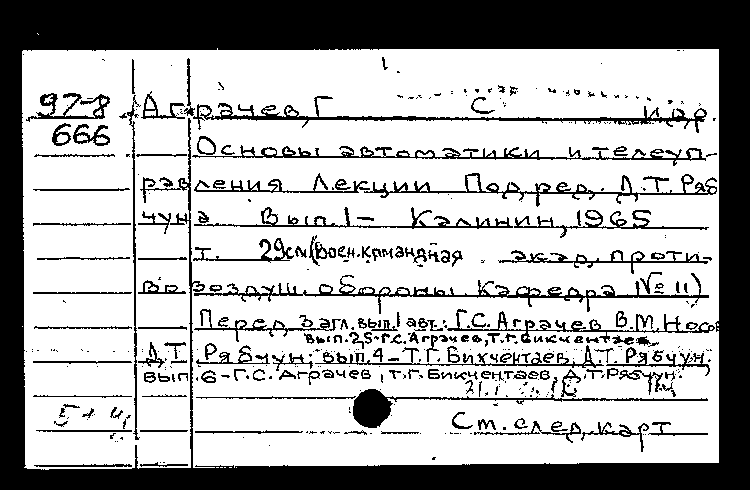 97-8 Аграчев, Г С и др.
666
Основы автоматики и телеуп-
равления Лекции Под ред. Д.Т. Ряб
чуна Вып. 1 — Калинин, 1965
т. 29см (Воен. командная акад. проти-
во воздуш. обороны Кафедра № 11)
Перед загл. вып. 1 авт.: Г.С. Аграчев В.М. Носов
вып. 2,5-Г.С. Аграчев, Т.Г. Бикчентаев
Д.Т Рябчун; вып. 4 — Т.Г. Бикчентаев, Д.Т. Рябчун.
вып. 6 - Г.С. Аграчев, Т.Г. Бикчентаев, Д.Т. Рябчун.
Ст. след. карт